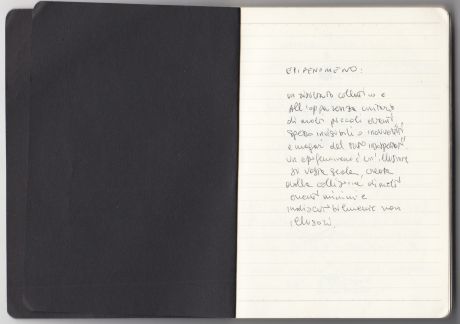 EPIFENOMENO:
un risultato collettivo e
all'apparenza unitario
di molti piccoli eventi
spesso invisibili o inavvertiti
e magari del tutto inaspettati.
un epifenomeno è un'illusione
su vasta scala, creata
dalla collisione di molti
eventi minimi e
indiscutibilmente non
illusori.